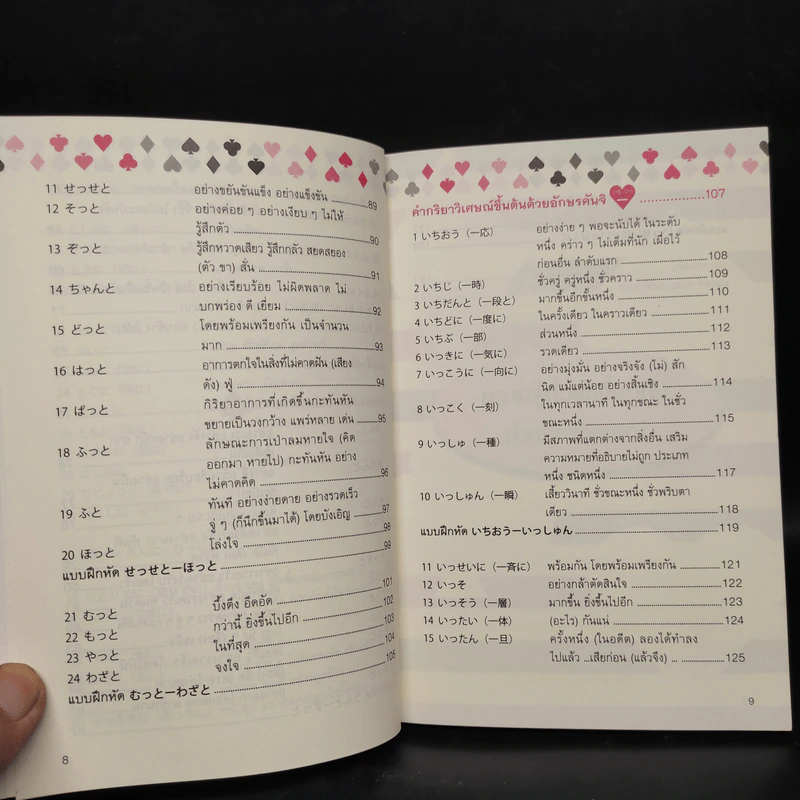 11 せっせと อย่างขยันขันแข็ง อย่างแข็งขัน ........ 89
12 そっと อย่างค่อย ๆ อย่างเงียบ ๆ ไม่ให้
รู้สึกตัว ........ 90
13 ぞっと รู้สึกหวาดเสียว รู้สึกกลัว สยดสยอง
(ตัว ขา) สั่น ........ 91
14 ちゃんと อย่างเรียบร้อย ไม่ผิดพลาด ไม่
บกพร่อง ดี เยี่ยม ........ 92
15 どっと โดยพร้อมเพรียงกัน เป็นจำนวน
มาก ........ 93
16 はっと อาการตกใจในสิ่งที่ไม่คาดฝัน (เสียง
ดัง) ฟู่ ........ 94
17 ぱっと กิริยาอาการที่เกิดขึ้นกะทันหัน
ขยายเป็นวงกว้าง แพร่หลาย เด่น ........ 95
18 ふっと ลักษณะการเป่าลมหายใจ (คิด
ออกมา หายไป) กะทันหัน อย่าง
ไม่คาดคิด ........ 96
19 ふと ทันที อย่างง่ายดาย อย่างรวดเร็ว
จู่ ๆ (ก็นึกขึ้นมาได้) โดยบังเอิญ ........ 97
20 ほっと โล่งใจ ........ 98
แบบฝึกหัด せっせとーほっと ........ 99
21 むっと บึ้งตึง อึดอัด ........ 101
22 もっと กว่านี้ ยิ่งขึ้นไปอีก ........ 102
23 やっと ในที่สุด ........ 103
24 わざと จงใจ ........ 104
แบบฝึกหัด むっとーわざと ........ 105
8
คำกริยาวิเศษณ์ขึ้นต้นด้วยอักษรคันจิ ........ 107
1 いちおう（一応） อย่างง่าย ๆ พอจะนับได้ ในระดับ
หนึ่ง คร่าว ๆ ไม่เต็มที่นัก เผื่อไว้
ก่อนอื่น ลำดับแรก ........ 108
2 いちじ（一時） ชั่วครู่ ครู่หนึ่ง ชั่วคราว ........ 109
3 いちだんと（一段と） มากขึ้นอีกขั้นหนึ่ง ........ 110
4 いちどに（一度に） ในครั้งเดียว ในคราวเดียว ........ 111
5 いちぶ（一部） ส่วนหนึ่ง ........ 112
6 いっきに（一気に） รวดเดียว ........ 113
7 いっこうに（一向に） อย่างมุ่งมั่น อย่างจริงจัง (ไม่) สัก
นิด แม้แต่น้อย อย่างสิ้นเชิง ........ 114
8 いっこく（一刻） ในทุกเวลานาที ในทุกขณะ ในชั่ว
ขณะหนึ่ง ........ 115
9 いっしゅ（一種） มีสภาพที่แตกต่างจากสิ่งอื่น เสริม
ความหมายที่อธิบายไม่ถูก ประเภท
หนึ่ง ชนิดหนึ่ง ........ 117
10 いっしゅん（一瞬） เสี้ยววินาที ชั่วขณะหนึ่ง ชั่วพริบตา
เดียว ........ 118
แบบฝึกหัด いちおうーいっしゅん ........ 119
11 いっせいに（一斉に） พร้อมกัน โดยพร้อมเพรียงกัน ........ 121
12 いっそ อย่างกล้าตัดสินใจ ........ 122
13 いっそう（一層） มากขึ้น ยิ่งขึ้นไปอีก ........ 123
14 いったい（一体） (อะไร) กันแน่ ........ 124
15 いったん（一旦） ครั้งหนึ่ง (ในอดีต) ลองได้ทำลง
ไปแล้ว ...เสียก่อน (แล้วจึง) ... ........ 125
9